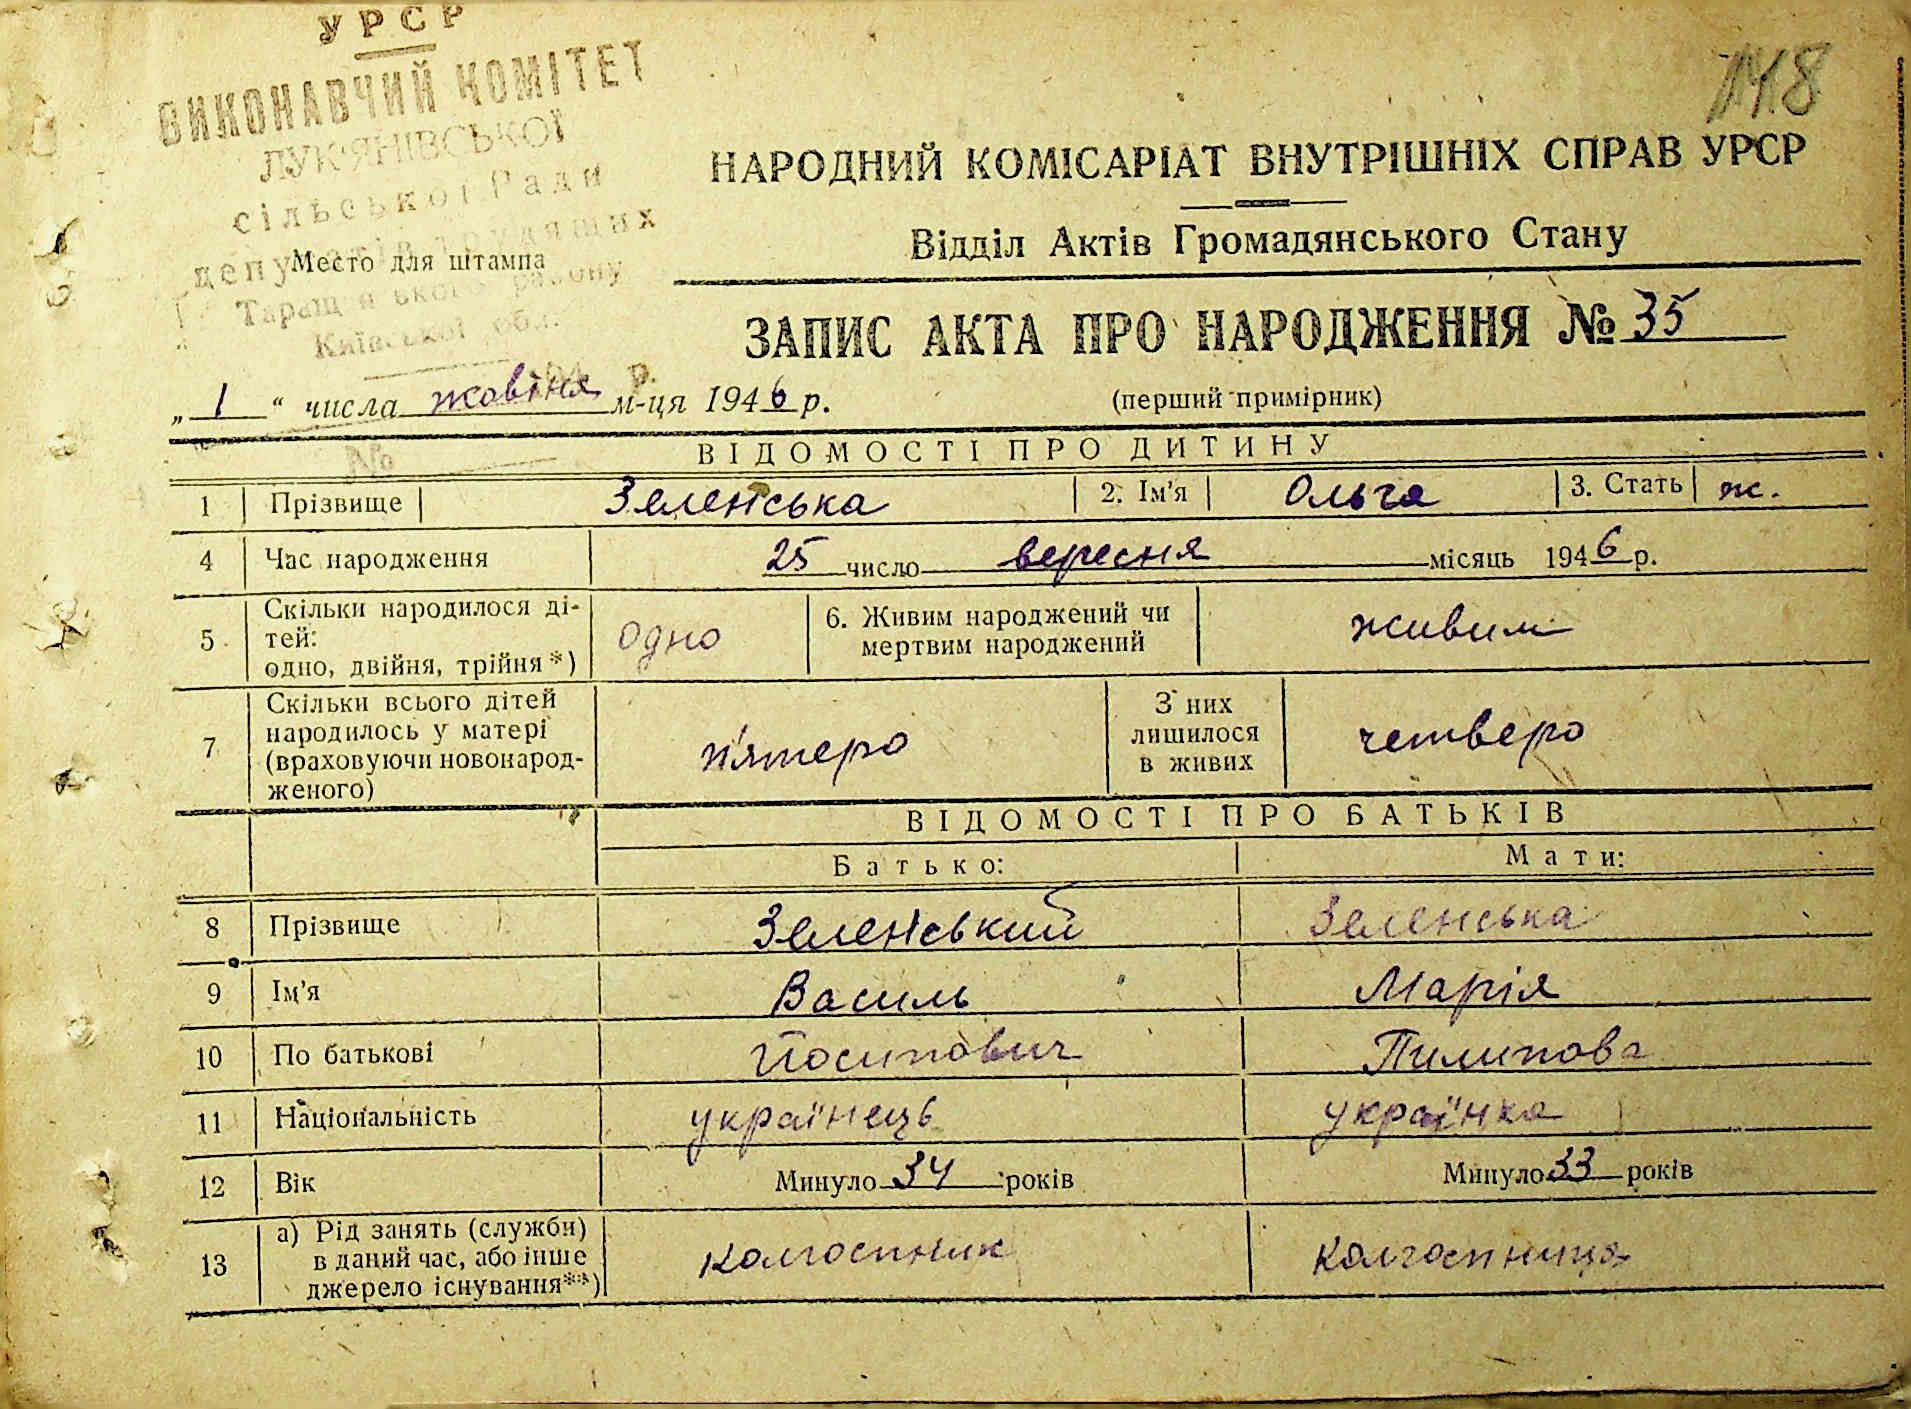 УРСР
ВИКОНАВЧИЙ КОМІТЕТ
ЛУК'ЯНІВСЬКОЇ
сільської Ради
депутатів трудящих
Таращанського району
Київської обл.
№
148
НАРОДНИЙ КОМІСАРІАТ ВНУТРІШНІХ СПРАВ УРСР
Відділ Актів Громадянського Стану
Место для штампа
ЗАПИС АКТА ПРО НАРОДЖЕННЯ № 35
„1“ числа жовтня м-ця 1946 р. (перший примірник)
ВІДОМОСТІ ПРО ДИТИНУ
1 Прізвище Зеленська 2. Ім'я Ольга 3. Стать ж.
4 Час народження 25 число вересня місяць 1946 р.
5 Скільки народилося ді-
тей:
одно, двійня, трійня*) одно 6. Живим народжений чи
мертвим народжений живим
7 Скільки всього дітей
народилось у матері
(враховуючи новонарод-
женого) п'ятеро З них
лишилося
в живих четверо
ВІДОМОСТІ ПРО БАТЬКІВ
Батько: Мати:
8 Прізвище Зеленський Зеленська
9 Ім'я Василь Марія
10 По батькові Йосипович Пилипова
11 Національність українець українка
12 Вік Минуло 34 років Минуло 33 років
13 а) Рід занять (служби)
в даний час, або інше
джерело існування**) колгоспник колгоспниця